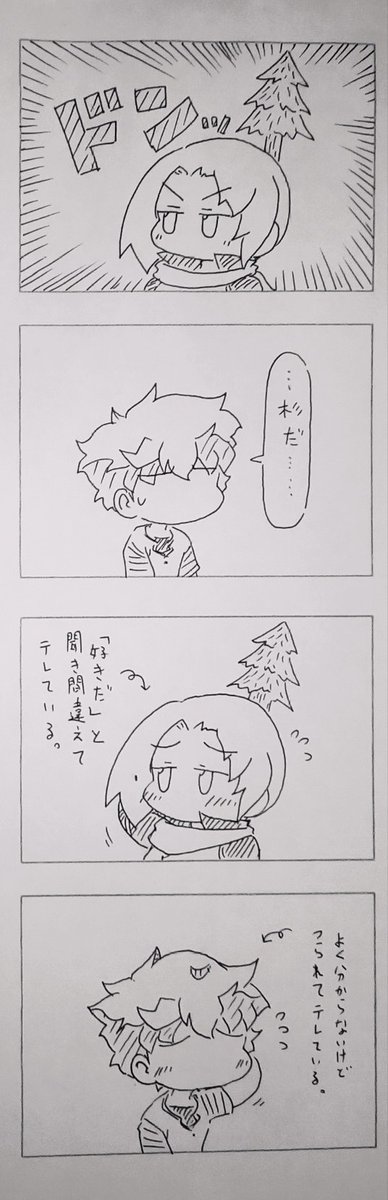 ドンッ
…杉だ……
「好きだ」と
聞き間違えて
テレている。
よく分からないけど
つられてテレている。